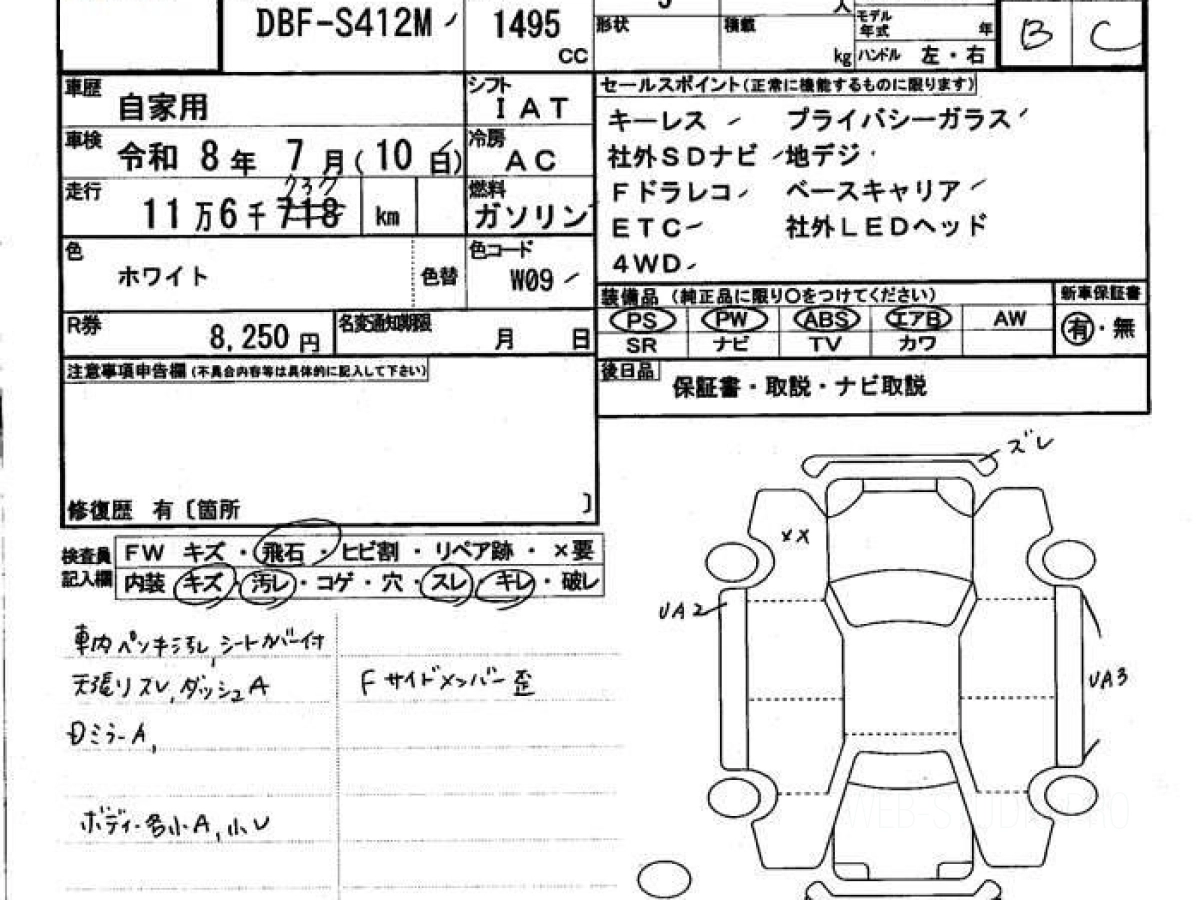 DBF-S412M
1495 CC
形状
積載
kg
人
モデル年式
年
ハンドル 左・右
B C
車歴 自家用
シフト IAT
車検 令和 8年 7月(10日)
冷房 AC
走行 11万6千718 km
737
燃料 ガソリン
色 ホワイト
色替
色コード W09
R券 8,250円
名変通知期限 月 日
注意事項申告欄(不具合内容等は具体的に記入して下さい)
修復歴 有〔箇所 〕
セールスポイント(正常に機能するものに限ります)
キーレス プライバシーガラス
社外SDナビ 地デジ
Fドラレコ ベースキャリア
ETC 社外LEDヘッド
4WD
装備品 (純正品に限り○をつけてください)
新車保証書
PS PW ABS エアB AW
SR ナビ TV カワ
有・無
後日品 保証書・取説・ナビ取説
検査員記入欄
FW キズ・飛石・ヒビ割・リペア跡・×要
内装 キズ・汚レ・コゲ・穴・スレ・キレ・破レ
車内ペンキ汚レ,シートカバー付
天張リスレ,ダッシュA
Fサイドメンバー歪
Dミラー A,
ボディー各小A,小U
ズレ
××
UA2
UA3
WEB-STUDIO.PRO